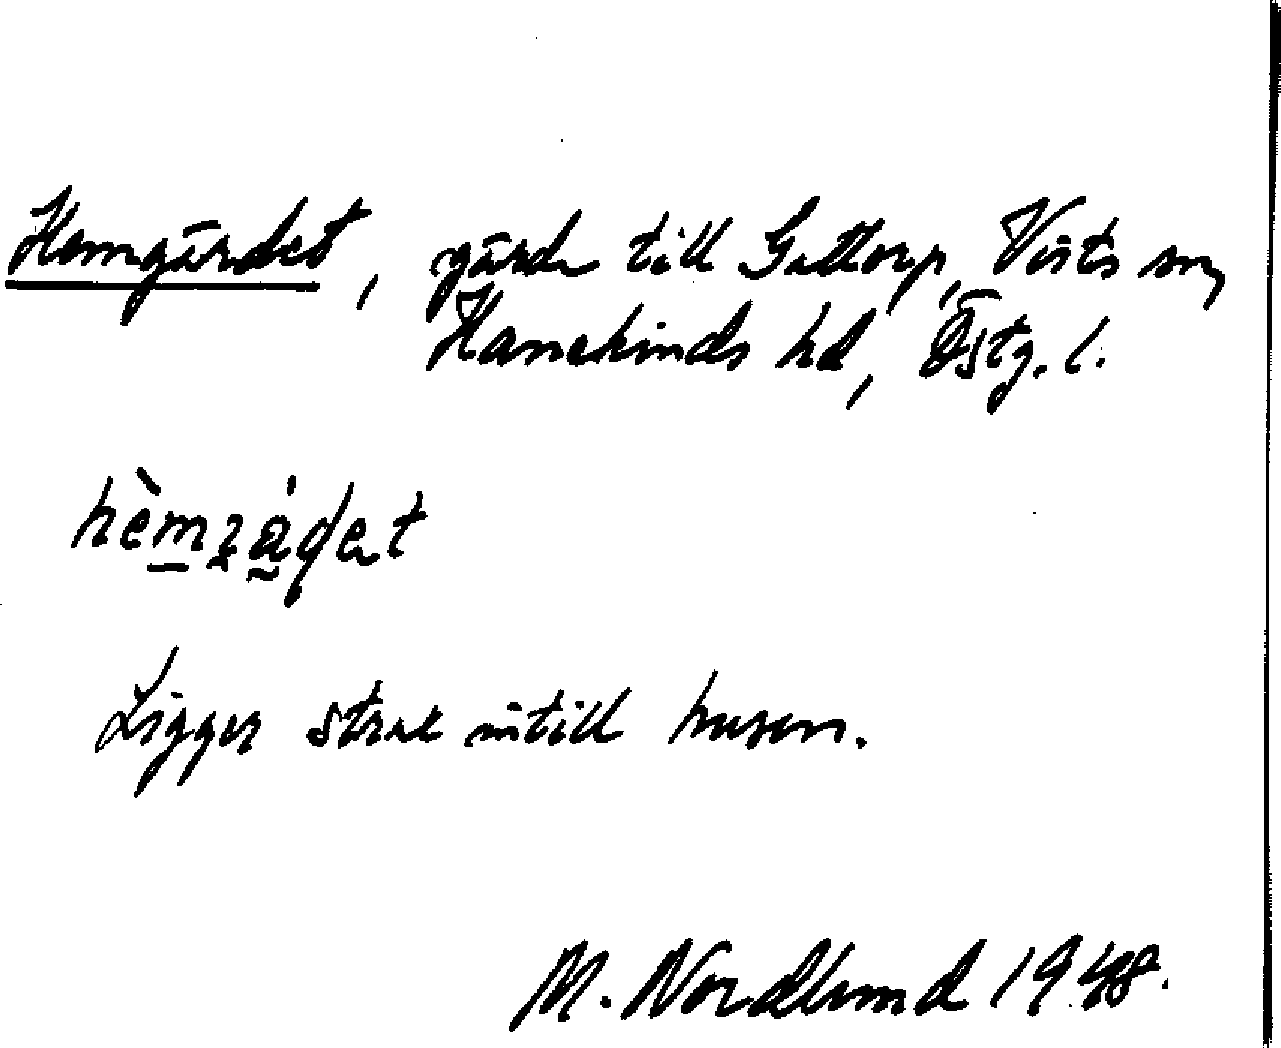 Hemgärdet, gärde till Gittorp, Vists sn,
Hanekinds hd, Östg. l.
Ligger strax intill husen.
M. Nordlund 1948.